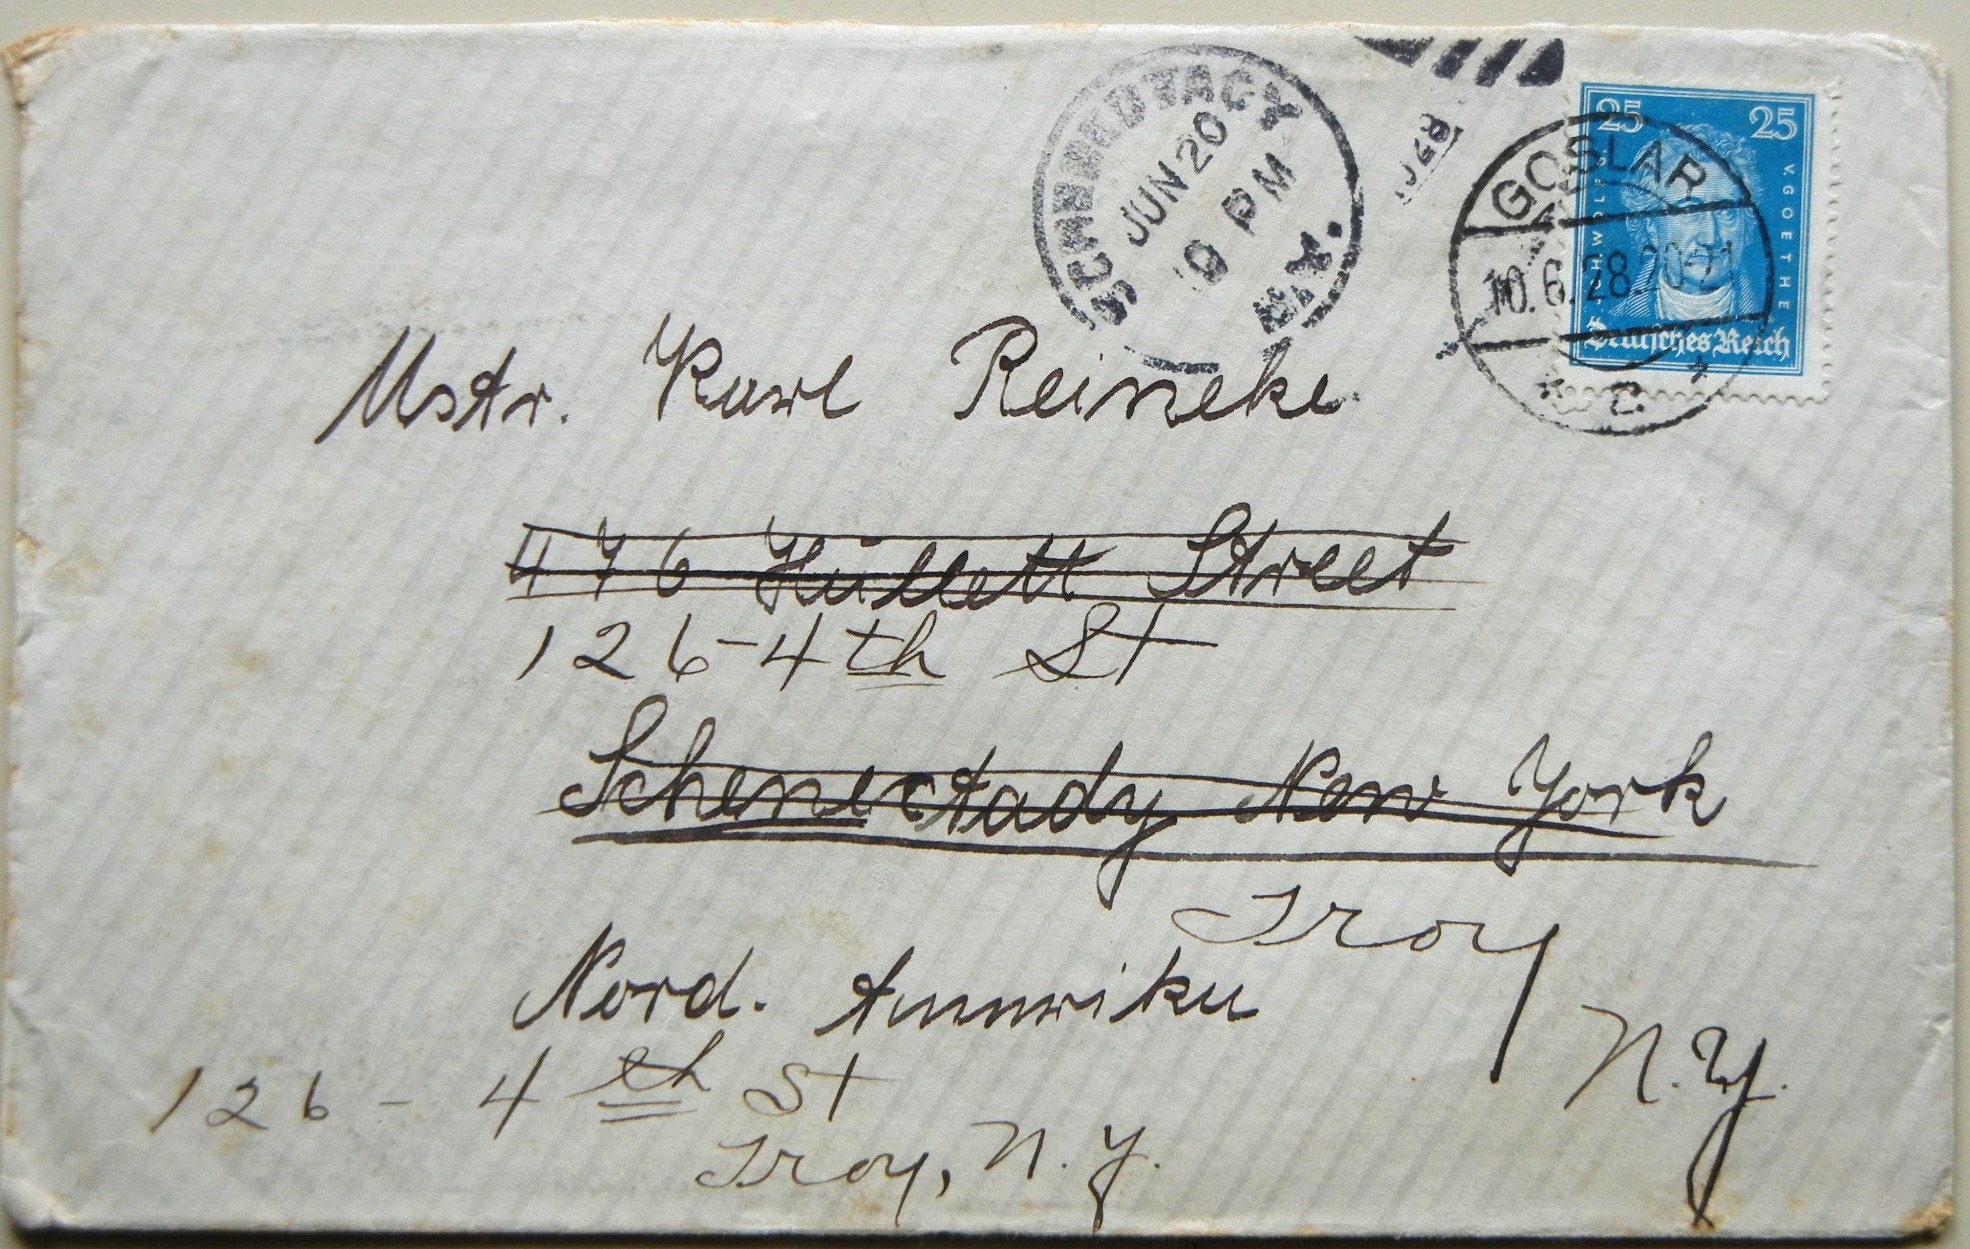 SCHENECTADY
JUN 20
9 PM
N.Y.
1928
25 25
J·WOLFG·V·GOETHE
Deutsches Reich
GOSLAR
10.6.28.20-21
* c. *
Mstr. Karl Reineke
476 Hullett Street
126-4th St
Schenectady New York
Troy
N.Y.
Nord. Amerika
126 - 4th St
Troy, N.Y.